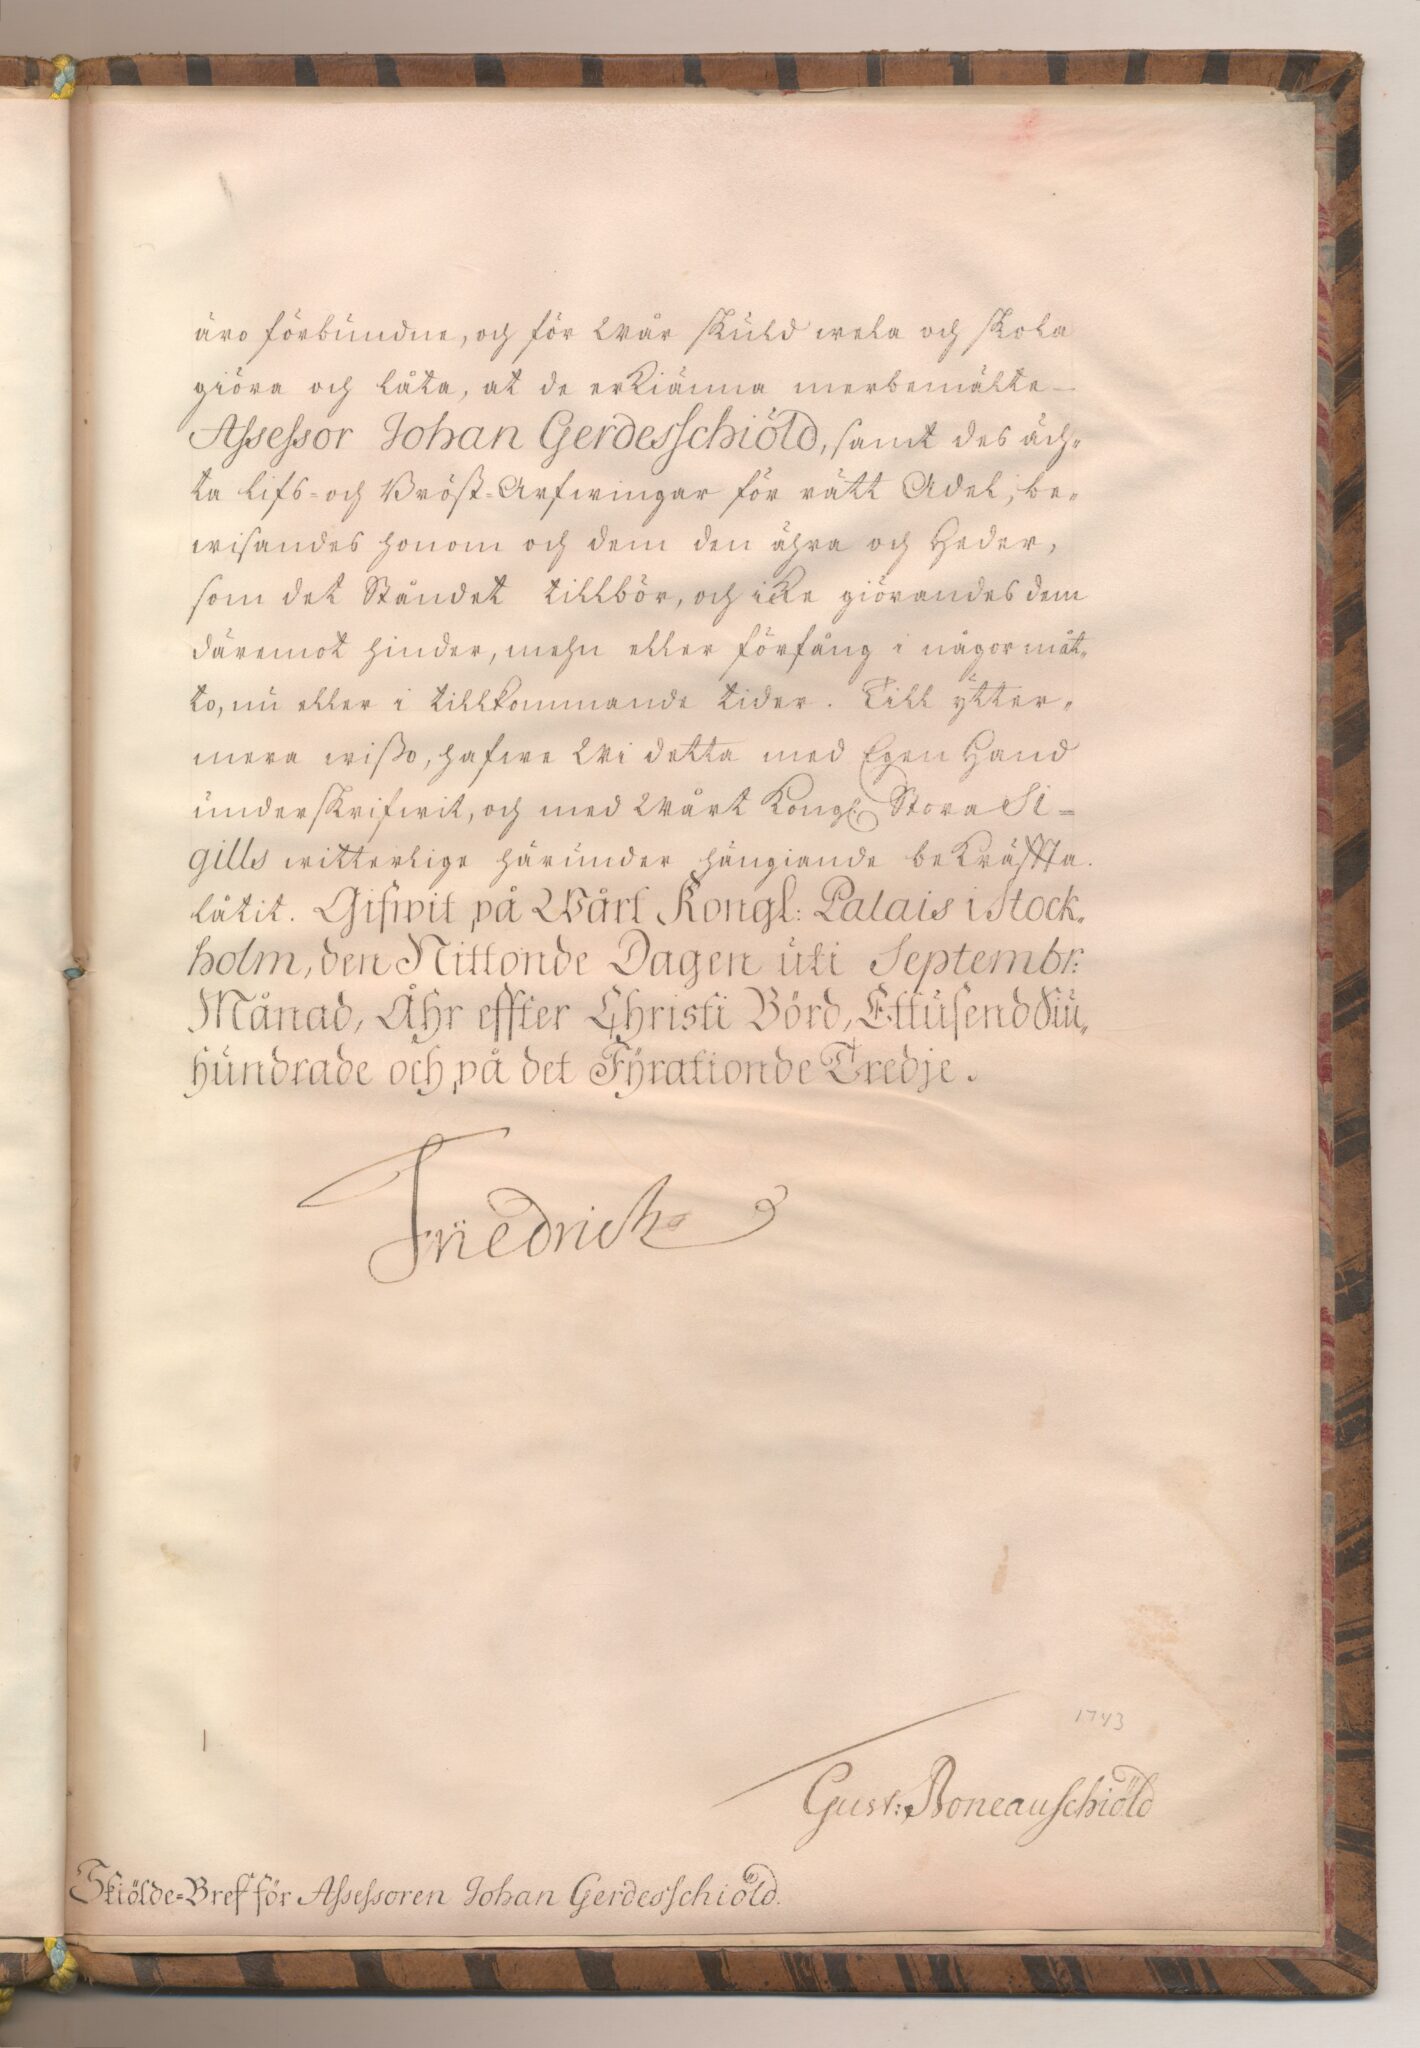 äro förbundne, och för Wår skuld wela och skola
giöra och låta, at de erkiänna merbemälte
Assessor Johan Gerdesschiöld, samt des äch-
ta Lifs- och Bröst-Arfwingar för rätt Adel, be-
wisandes honom och dem den ähra och Heder,
som det Ståndet tillbör, och icke giörandes dem
däremot hinder, mehn eller förfång i någor måt-
to, nu eller i tillkommande tider. Till ytter-
mera wißo, hafwe Wi detta med Egen Hand
underskrifwit, och med Wårt Kongl: Stora Si-
gills witterlige härunder hängiande bekräffta
låtit. Gifwit på Wårt Kongl: Palais i Stock-
holm, den Nittonde Dagen uti Septembr:
Månad, Åhr effter Christi Börd, Ettusend Siu-
hundrade och på det Fyrationde Tredje.
Friedrich
1743
Gust: Boneauschiöld
Skiölde-Bref för Assessoren Johan Gerdesschiöld.